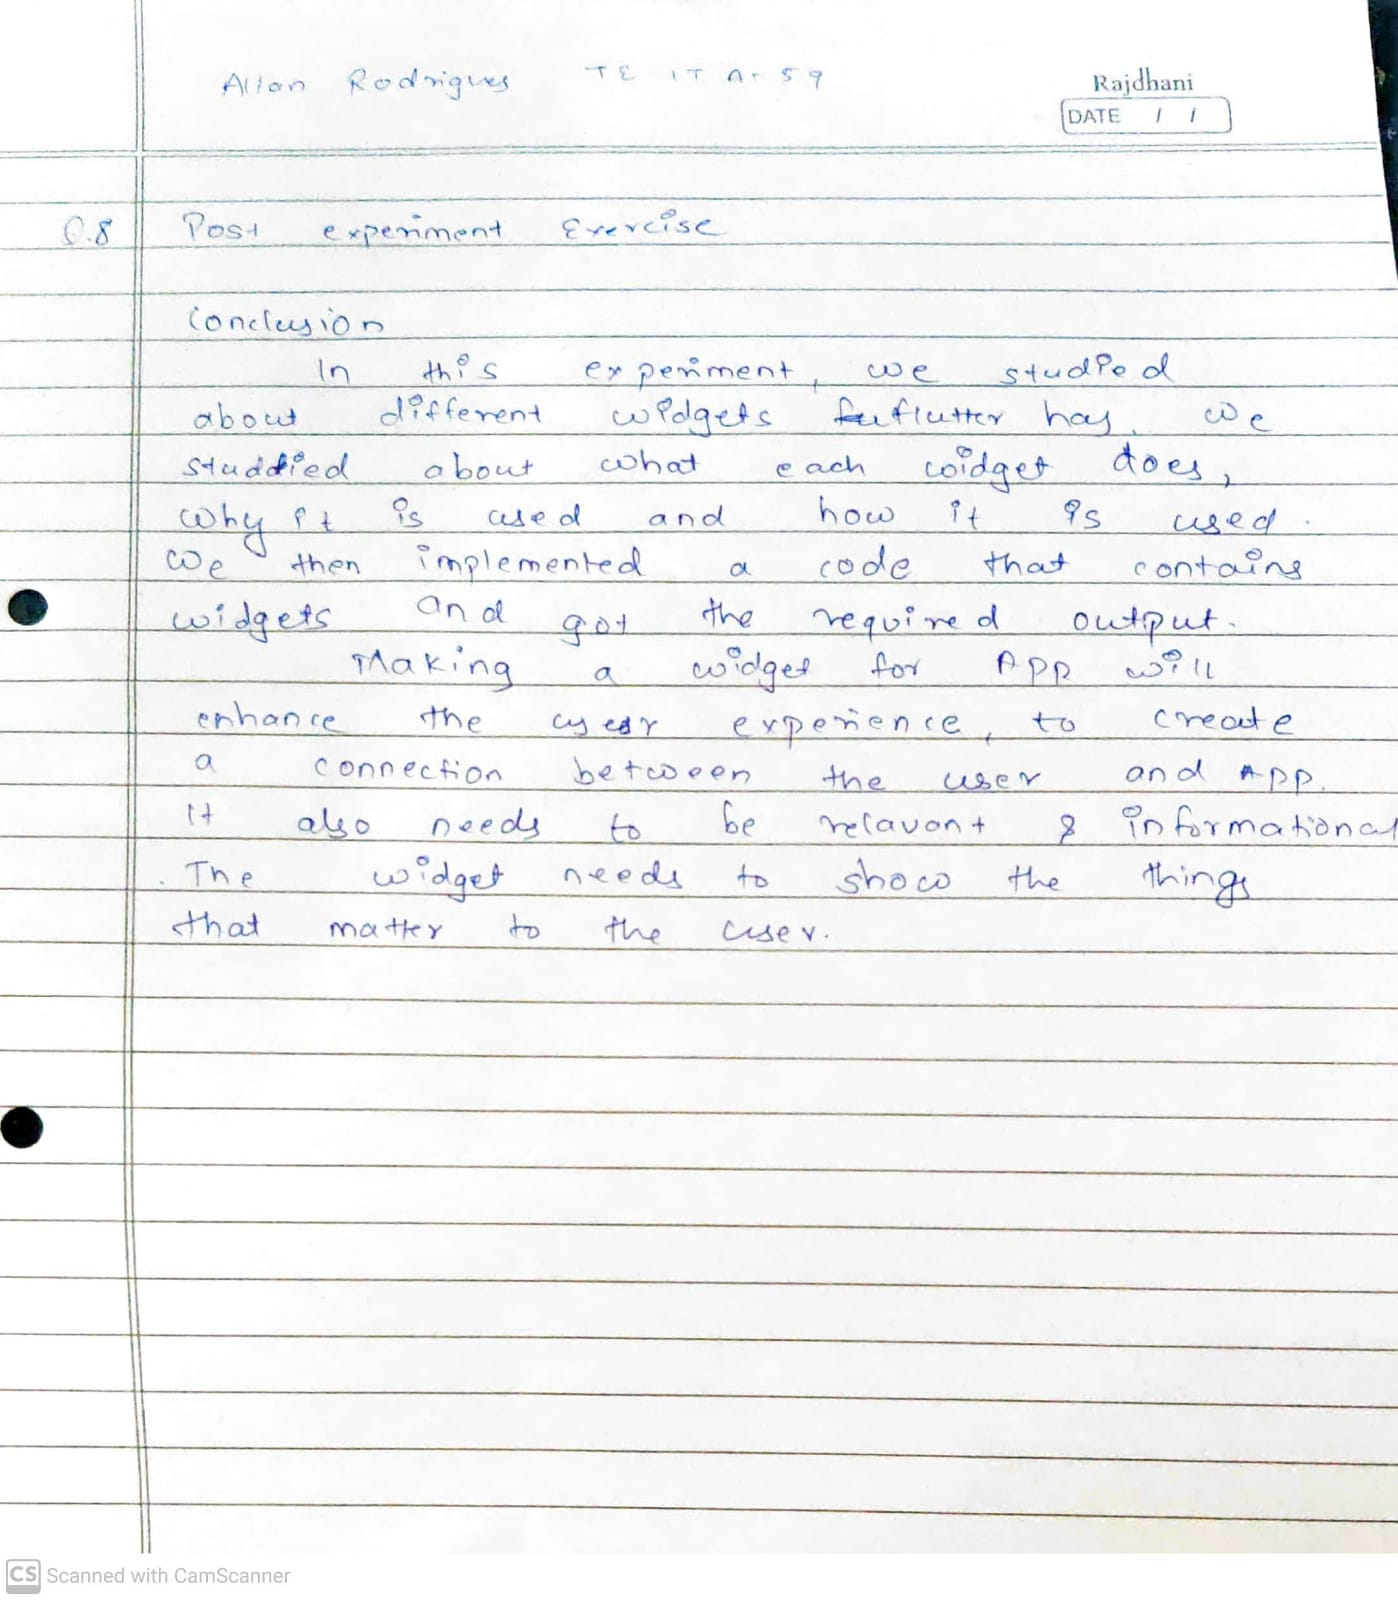 Allan Rodrigues TE IT A-59
Rajdhani
DATE / /
Q.8 Post experiment Exercise
Conclusion
In this experiment, we studied
about different widgets flutter has. we
studdied about what each widget does,
why it is used and how it is used.
we then implemented a code that contains
widgets and got the required output.
Making a widget for App will
enhance the user experience, to create
a connection between the user and App.
It also needs to be relavant & informational
. The widget needs to show the things
that matter to the user.
CS Scanned with CamScanner